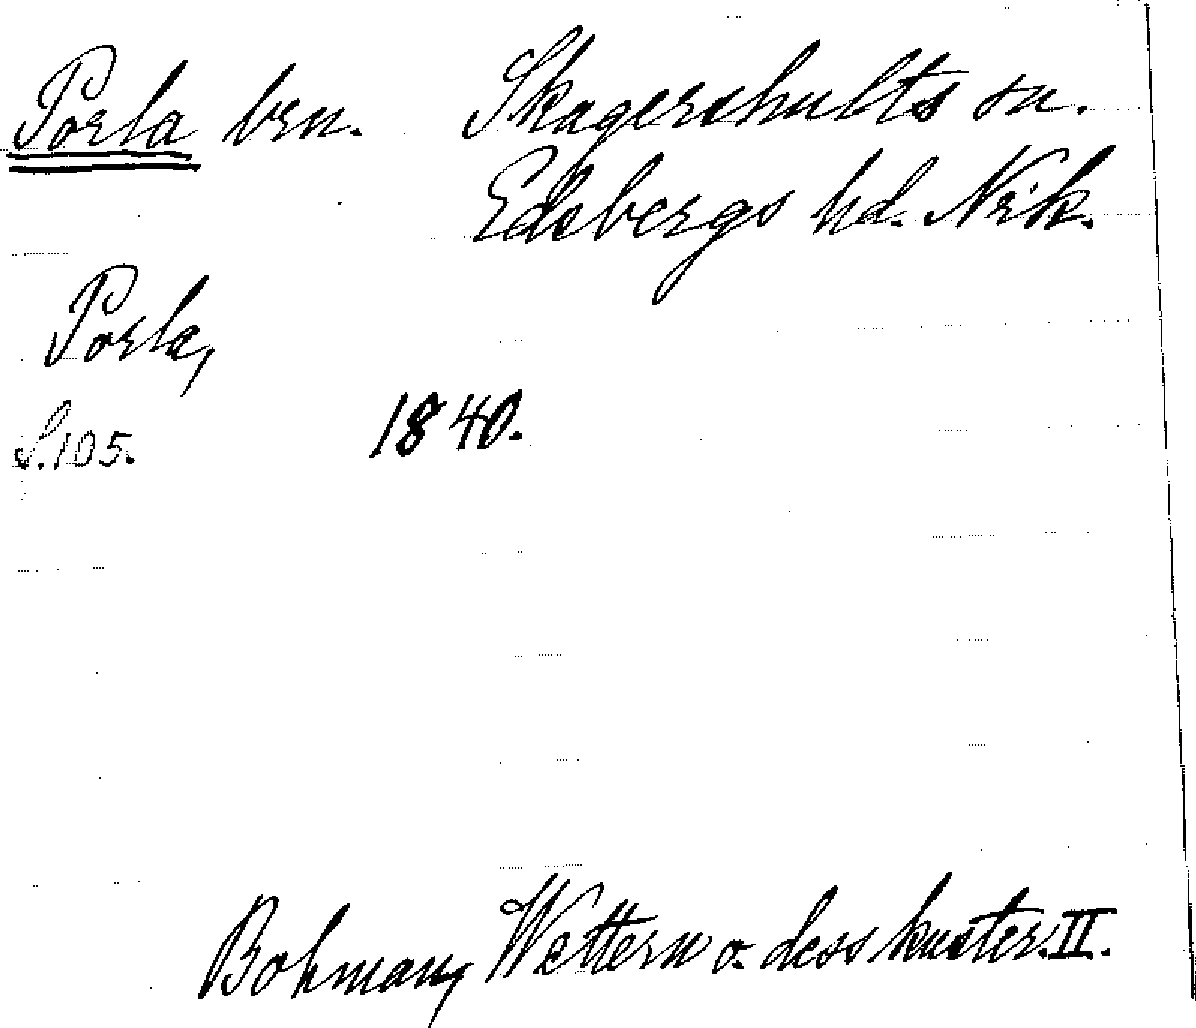 Porla brn. Skagershults sn.
Edsbergs hd. Nrk.
Porla,
S. 105. 1840.
Bohman, Wettern o. dess kuster. II.